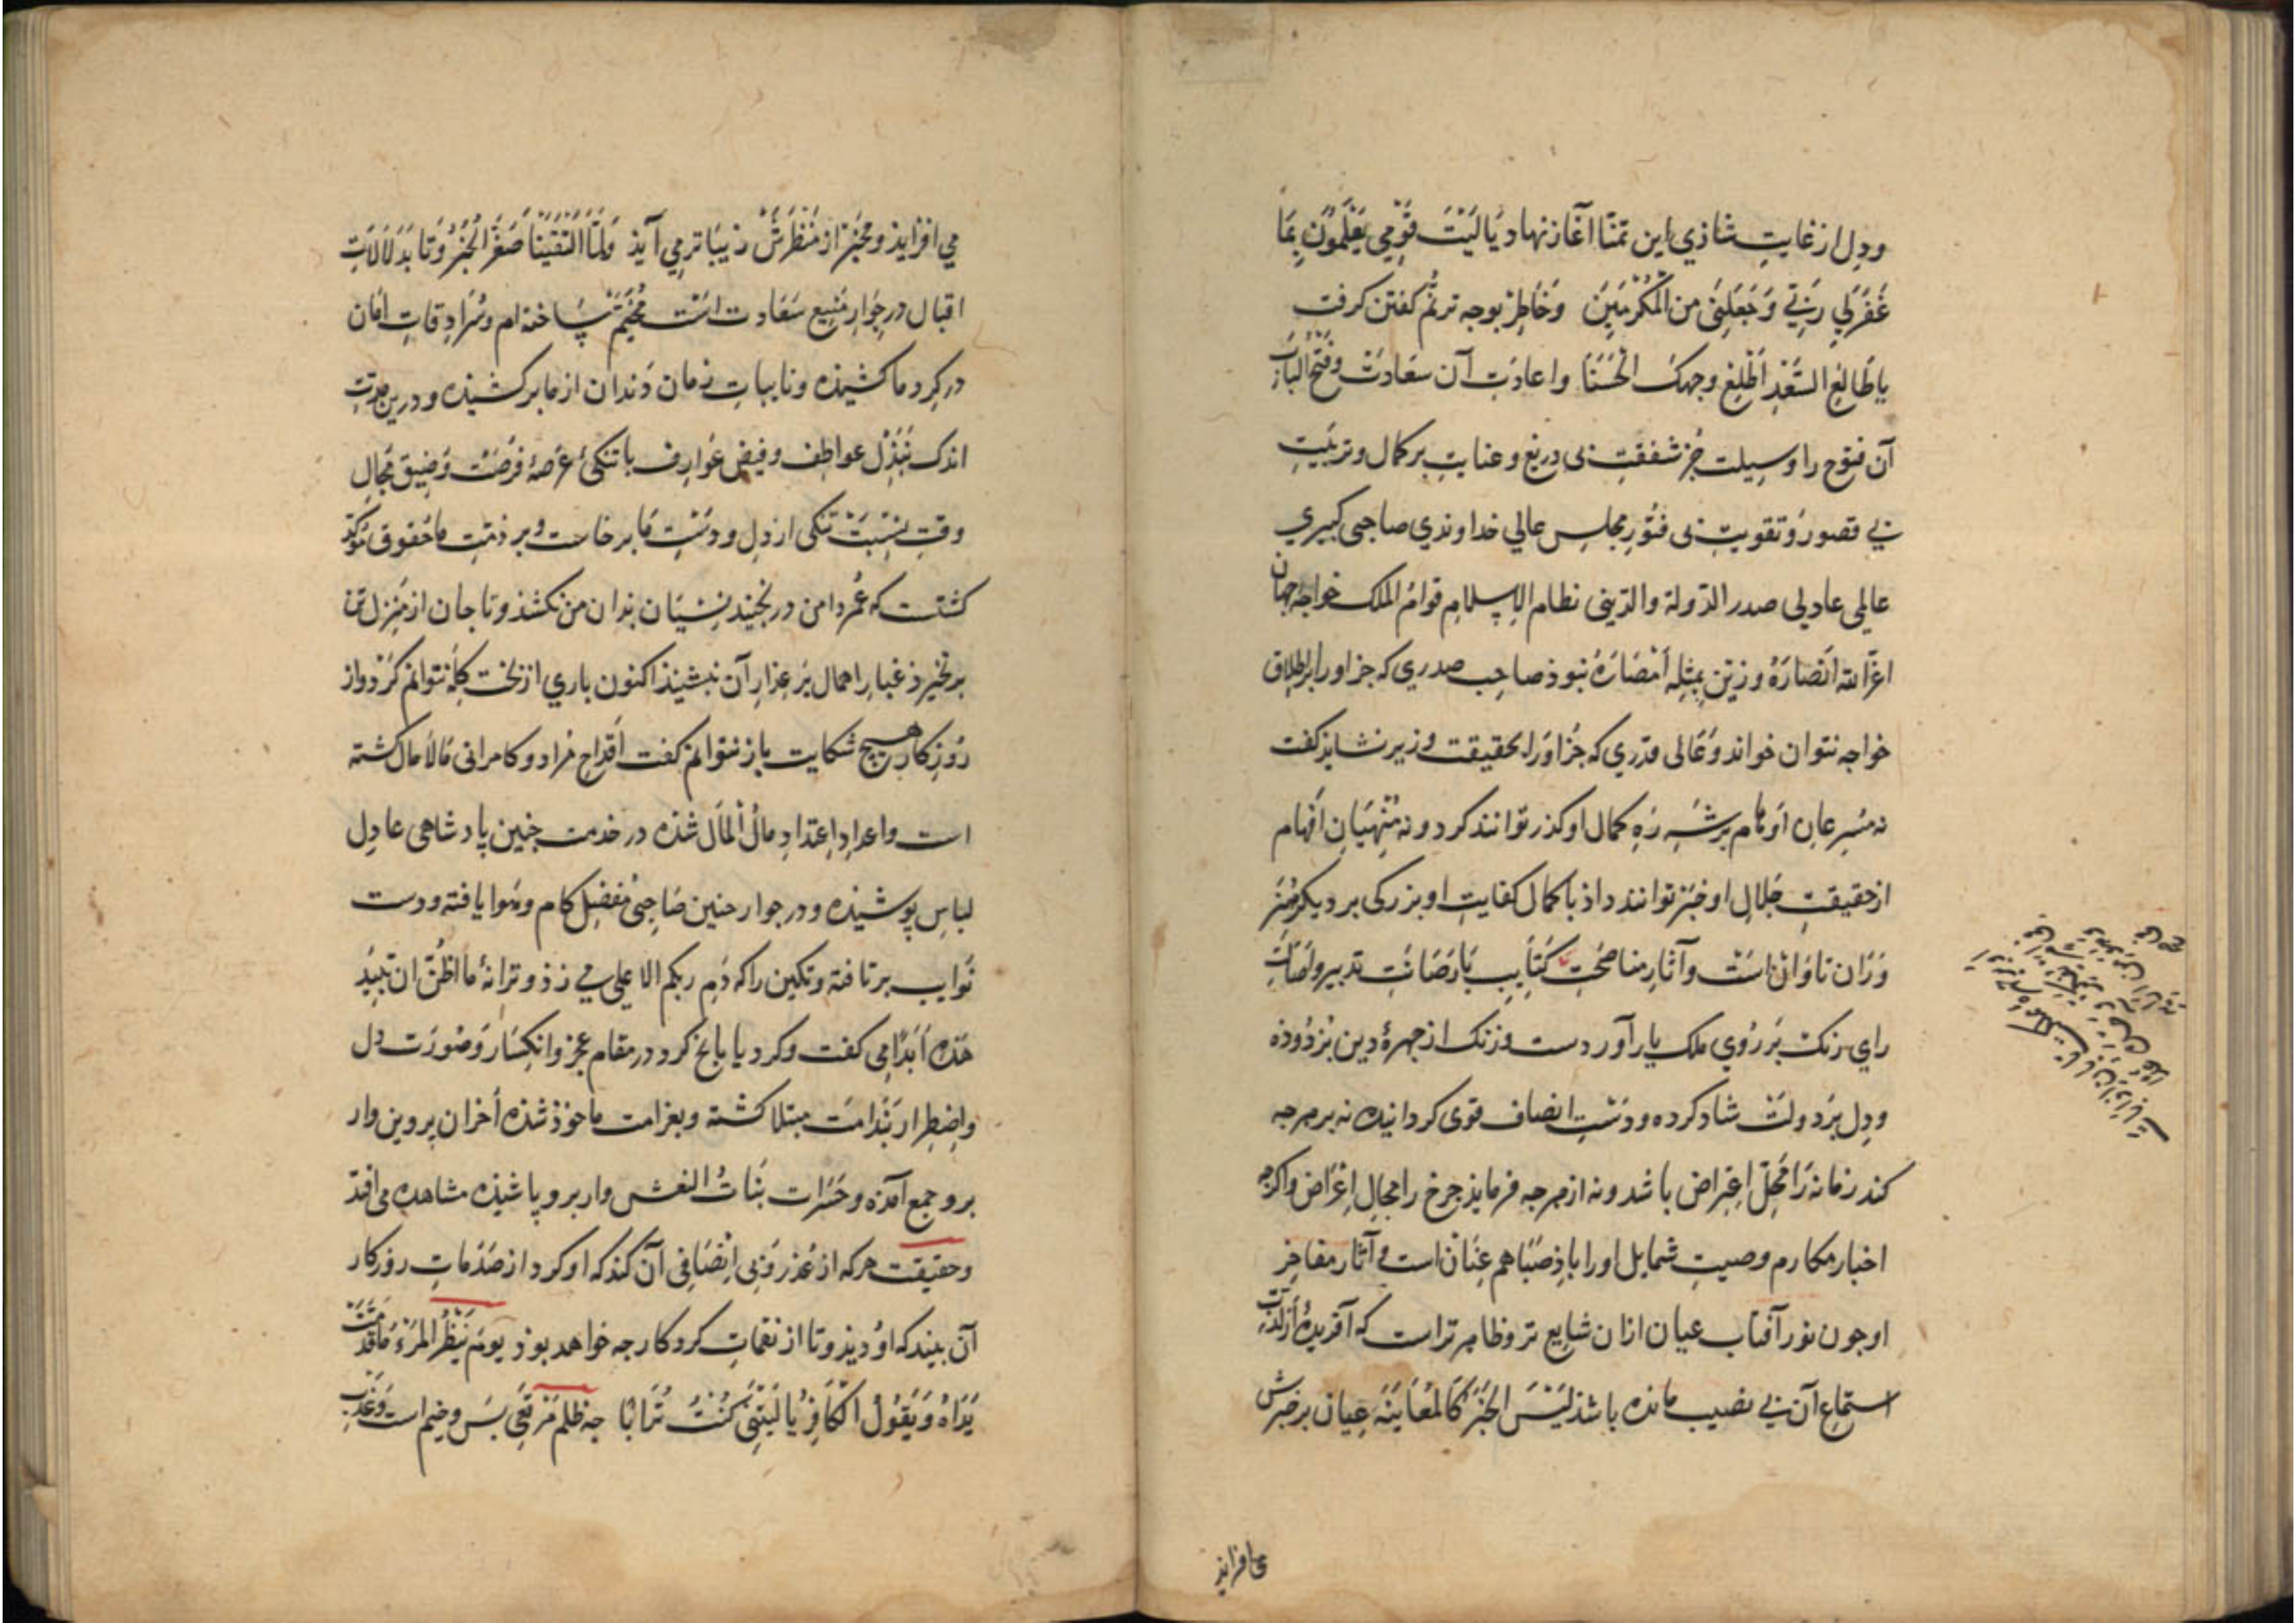 ودل از غایت شاذي این تمنّا آغاز نهاد یَا لَیْتَ قَوْمِي یَعْلَمُونَ بِمَا
غَفَرَلِي رَبِّي وَجَعَلَنِی مِنَ الْمُكْرَمِینَ وخاطر بوجه ترنّم گفتن گرفت
یا طَالِعَ السَّعْدِ اَطْلِعْ وجهك الحَسَنَا واعادت آن سعادت وفتح الباب
آن فتوح را وسیلت جز شفقت بی دریغ وعنایت بر کمال وتربیت
بي قصور وتقویت بی فتور مجلس عالي خداوندي صاحبی کبیري
عالمی عادلی صدر الدّولة والدّینی نظام الاسلام قوام الملک خواجه جهان
اعزّ الله انصاره وزیّن بمثله امصاره نبوذ صاحب صدري که جز اورا بر اطلاق
خواجه نتوان خواند وعالی قدري که جز اورا بحقیقت وزیر نشاید گفت
نه مسرعان اوهام بر شبه ره کمال او گذر توانند کرد ونه منهیان افهام
از حقیقت جلال او خبر توانند داذ با کمال کفایت او بزرگی بر دیگر
وزان تاوانست وآثار مناصحت کتایب با رصانت تدبیر واصابت
راي رنگ بر روي ملک باز آوردست وزنگ از چهرهٔ دین بزدوذه
ودل بر دولت شاد کرده ودست انصاف قوی کردانیده نه بر هرجه
کند زمانه را محلّ اعتراض باشد ونه از هرجه فرماید جرخ را مجال اغراض واکرجه
اخبار مکارم وصیت شمایل اورا باذ صبا هم عنانست وآثار مفاخر
او جون نور آفتاب عیان ازان شایع تر وظاهر ترست که آفریدهٔ از لذّت
استماع آن بي نصیب مانده باشد لَیْسَ الخَبَرُ کَالْمُعَایَنَة عیان بر خبرش
می افزاید
مي افزاید ومخبر از منظرش زیباتر مي آید وَلَمَّا الْتَقَیْنَا صَغَّرَ الْخَبَرُ وتا بدلالت
اقبال در جوار منیع سعادتست مخیّم ساخته ام وسرادقات امان
در کرد ما کشیذه ونایبات زمان دندان از ما برکشیذه ودرین مدت
اندک ببذل عواطف وفیض عوارف با تنکئ عرصهٔ فرصت وضیق مجال
وقت بنسبت تنکی از دل ودست ما برخاست وبر ذمّت ما حقوق مؤکّد
کشتست که عمر دامن در نجیند نسیان بدان من نکشد وتا جان از منزل تن
برنخیزد غبار اهمال بر عذار آن ننشیند اکنون باري از بخت گله نتوانم کرد واز
روزکار هیچ شکایت باز نتوانم گفت اقداح مراد وکامرانی مالامال کشته
است واعداد اعتداد مال المال شذه در خدمت جنین پادشاهی عادل
لباس پوشیذه ودر جوار جنین صاحبی مفضل کام وهوا یافته ودست
نوایب برتافته وتکین را که دم ربکم الاعلی می زد وترانهٔ ما اظنّ ان تبید
هذه ابدا می گفت وکرد یا بانج کرد در مقام عجز وانکسار وصورت دل
واضطرار بندامت مبتلا کشته وبغرامت ماخوذ شذه احزان پروین وار
برو جمع آمذه وحسرات بنات النعش وار برو پاشیذه مشاهده می افتد
وحقیقت هرکه از غدر وبی انصافی آن کند که او کرد از صدمات روزکار
آن بیند که او دیذ وتا از نقمات کردکار جه خواهد بوذ یوم ینظر المرء ما قدّمت
یداه ویقول الکافر یا لیتنی کنت ترابا جه ظلم مرتعی بس وخیم است وعذب